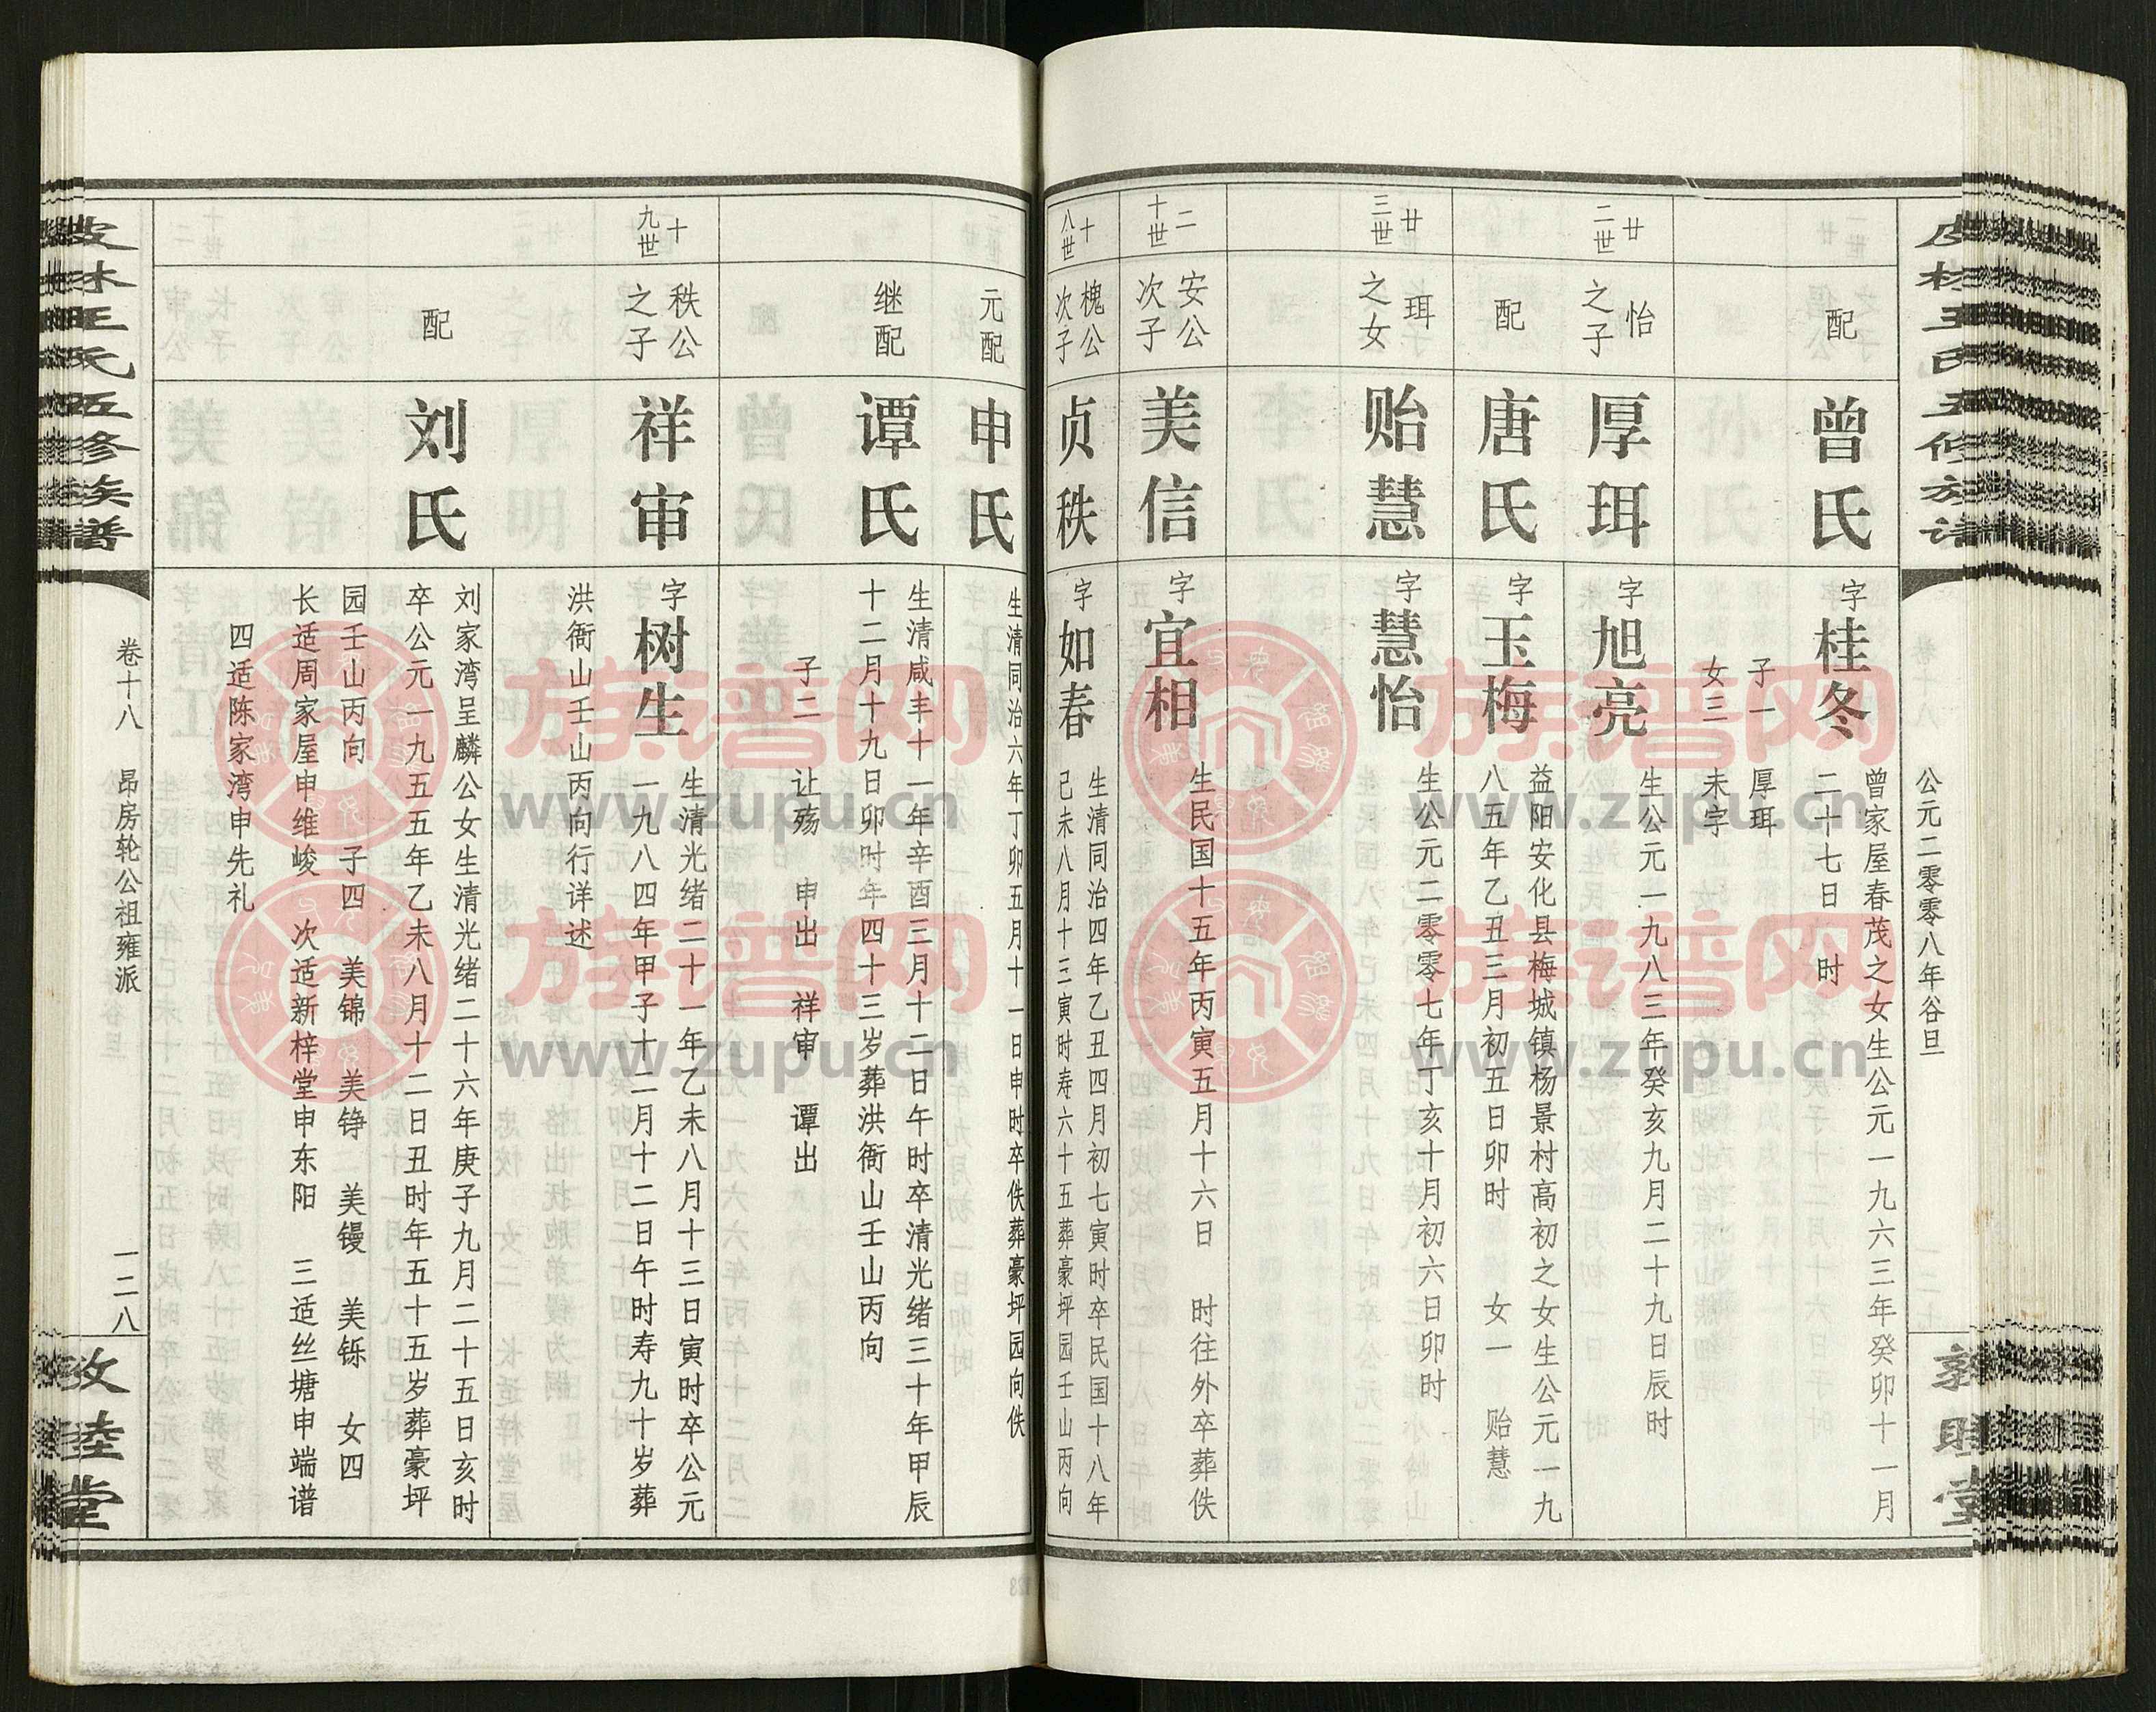 公元二零零八年谷旦
配
曾氏
字桂冬
曾家屋春茂之女生公元一九六三年癸卯十一月
二十七日 时
子一 厚珥
女三 未字
廿二世
怡之子
厚珥
字旭亮
生公元一九八三年癸亥九月二十九日辰时
配
唐氏
字玉梅
益阳安化县梅城镇杨景村高初之女生公元一九
八五年乙丑三月初五日卯时 女一 贻慧
廿三世
珥之女
贻慧
字慧怡
生公元二零零七年丁亥十月初六日卯时
二十世
安公次子
美信
字宜相
生民国十五年丙寅五月十六日 时往外卒葬佚
十八世
槐公次子
贞秩
字如春
生清同治四年乙丑四月初七寅时卒民国十八年
己未八月十三寅时寿六十五葬豪坪园壬山丙向
元配
申氏
生清同治六年丁卯五月十一日申时卒佚葬豪坪园向佚
继配
谭氏
生清咸丰十一年辛酉三月十二日午时卒清光绪三十年甲辰
十二月十九日卯时年四十三岁葬洪衙山壬山丙向
子二 让殇 申出 祥审 谭出
十九世
秩公之子
祥审
字树生
生清光绪二十一年乙未八月十三日寅时卒公元
一九八四年甲子十二月十二日午时寿九十岁葬
洪衙山壬山丙向行详述
配
刘氏
刘家湾呈麟公女生清光绪二十六年庚子九月二十五日亥时
卒公元一九五五年乙未八月十二日丑时年五十五岁葬豪坪
园壬山丙向 子四 美锦 美铮 美镘 美铄 女四
长适周家屋申维峻 次适新梓堂申东阳 三适丝塘申端谱
四适陈家湾申先礼
王氏五修族谱
卷十八 昂房轮公祖雍派 一二八
族谱网
www.zupu.cn
族谱网
www.zupu.cn
族谱网
www.zupu.cn
族谱网
www.zupu.cn